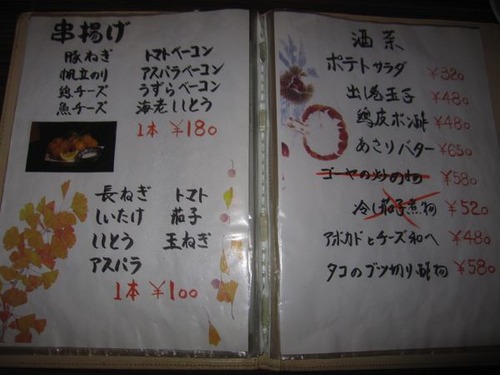 串揚げ
豚ねぎ トマトベーコン
帆立のり アスパラベーコン
鶏チーズ うずらベーコン
魚チーズ 海老ししとう
1本 ¥180
長ねぎ トマト
しいたけ 茄子
ししとう 玉ねぎ
アスパラ
1本 ¥100
酒菜
ポテトサラダ ¥320
出し巻玉子 ¥480
鶏皮ポン酢 ¥480
あさりバター ¥650
ゴーヤの炒め物 ¥580
冷し茄子煮物 ¥520
アボカドとチーズ和へ ¥480
タコのブツ切り酢物 ¥580